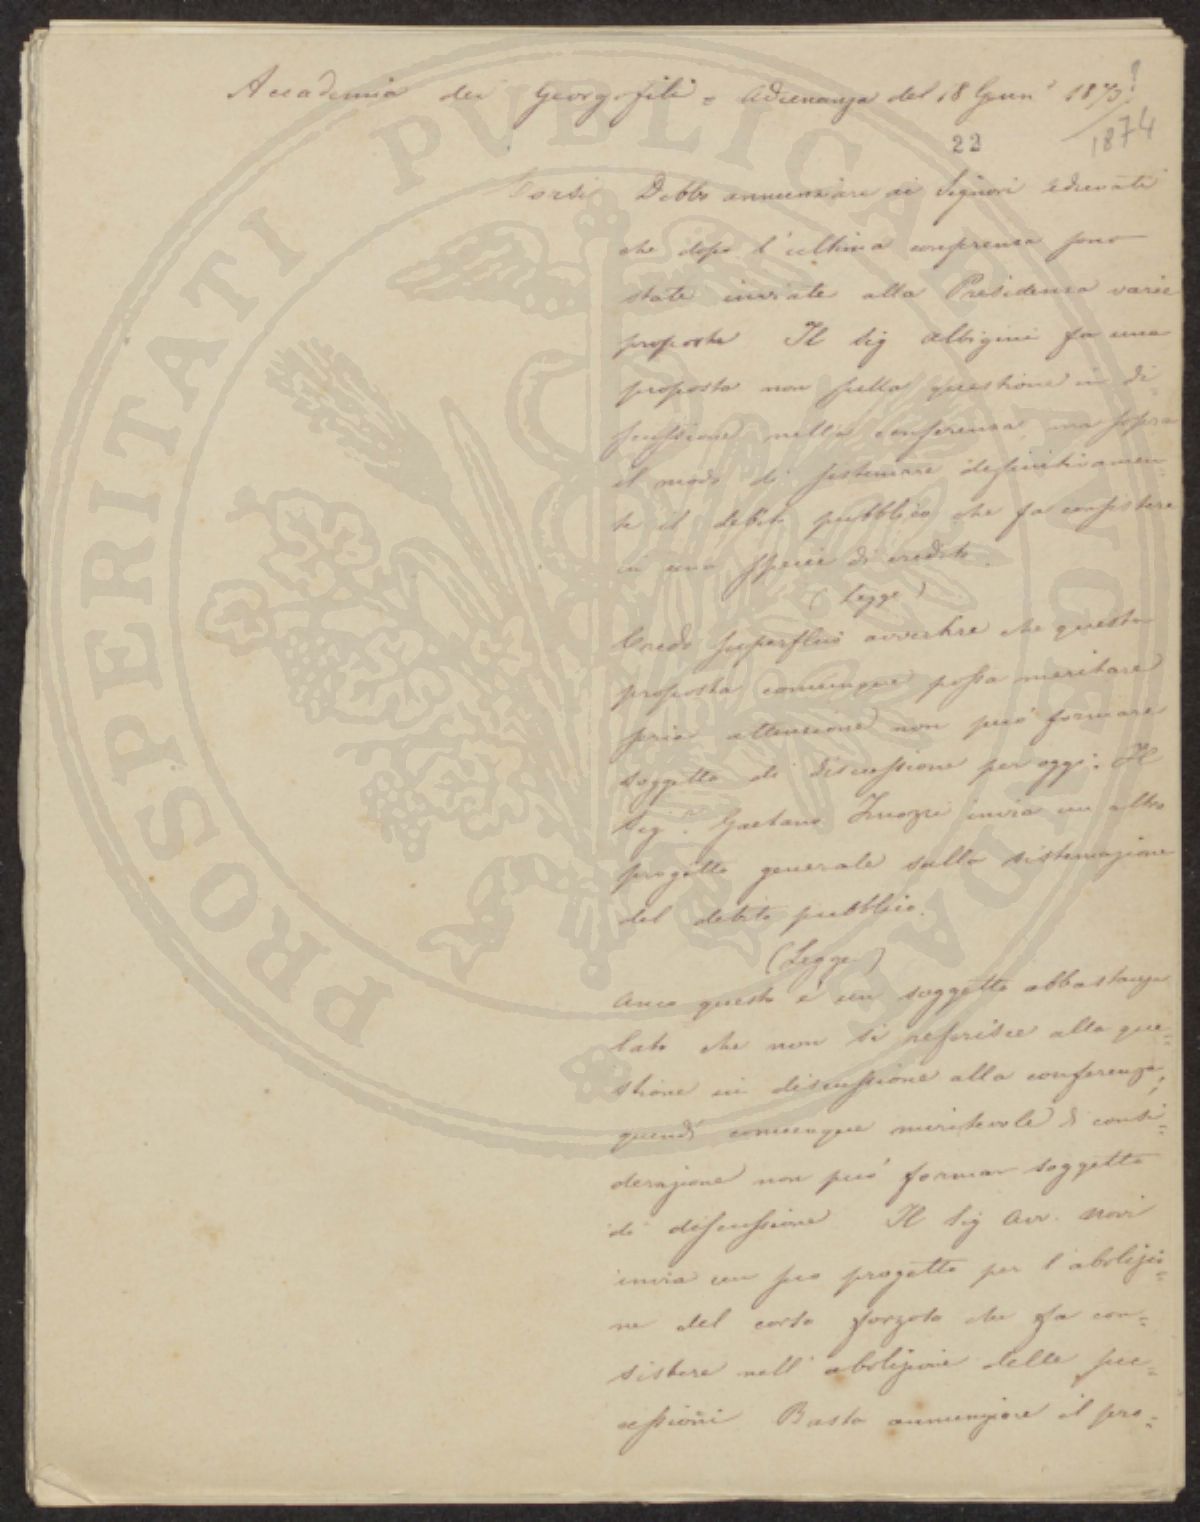 Accademia dei Georgofili = Adunanza del 18 Genn° 1873?
1874
22
Corsi Debbo annunziare ai Signori Adunati
che dopo l'ultima conferenza sono
state inviate alla Presidenza varie
proposte Il Sig Albigini fa una
proposta non sulla questione in di-
scussione nella conferenza, ma sopra
il modo di sistemare definitivamen-
te il debito pubblico che fa consistere
in una specie di credito.
(Legge)
Credo superfluo avvertire che questa
proposta comunque possa meritare
seria attenzione non può formare
soggetto di discussione per oggi. Il
Sig.r Gaetano invia un altro
progetto generale sulla sistemazione
del debito pubblico.
(Legge)
Anco questo è un soggetto abbastanza
lato che non si riferisce alla que=
stione in discussione alla conferenza;
quindi comunque meritevole di consi=
derazione non può formar soggetto
di discussione Il Sig Avv. Novi
invia un suo progetto per l'abolizio=
ne del corso forzoso che fa con=
sistere nell'abolizione delle suc=
cessioni Basta annunziare il pro=
PROSPERITATI PVBLICAE AVGENDAE